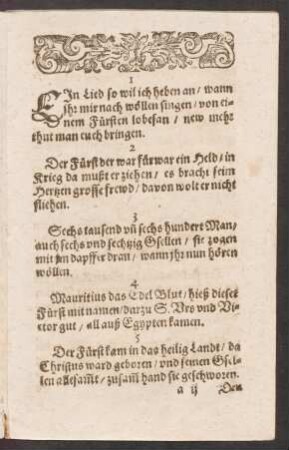 1
EIn Lied so wil ich heben an / wann
jhr mir nach wöllen singen / von ei-
nem Fürsten lobesan / new mehr
thut man euch bringen.
2
Der Fürst der war fürwar ein Held / in
Krieg da mußt er ziehen / es bracht seim
Hertzen grosse frewd / davon wolt er nicht
fliehen.
3
Sechs tausend vñ sechs hundert Man /
auch sechs vnd sechtzig Gsellen / sie zogen
mit jm dapffer dran / wann jhr nun hören
wöllen.
4
Mauritius das Edel Blut / hieß dieser
Fürst mit namen / darzu S. Vrs vnd Vi-
ctor gut / all auß Egypten kamen.
5
Der Fürst kam in das heilig Landt / da
Christus ward geboren / vnd seinen Gsel-
len allesam̃t / zusam̃ hand sie geschworen.
a ij Den